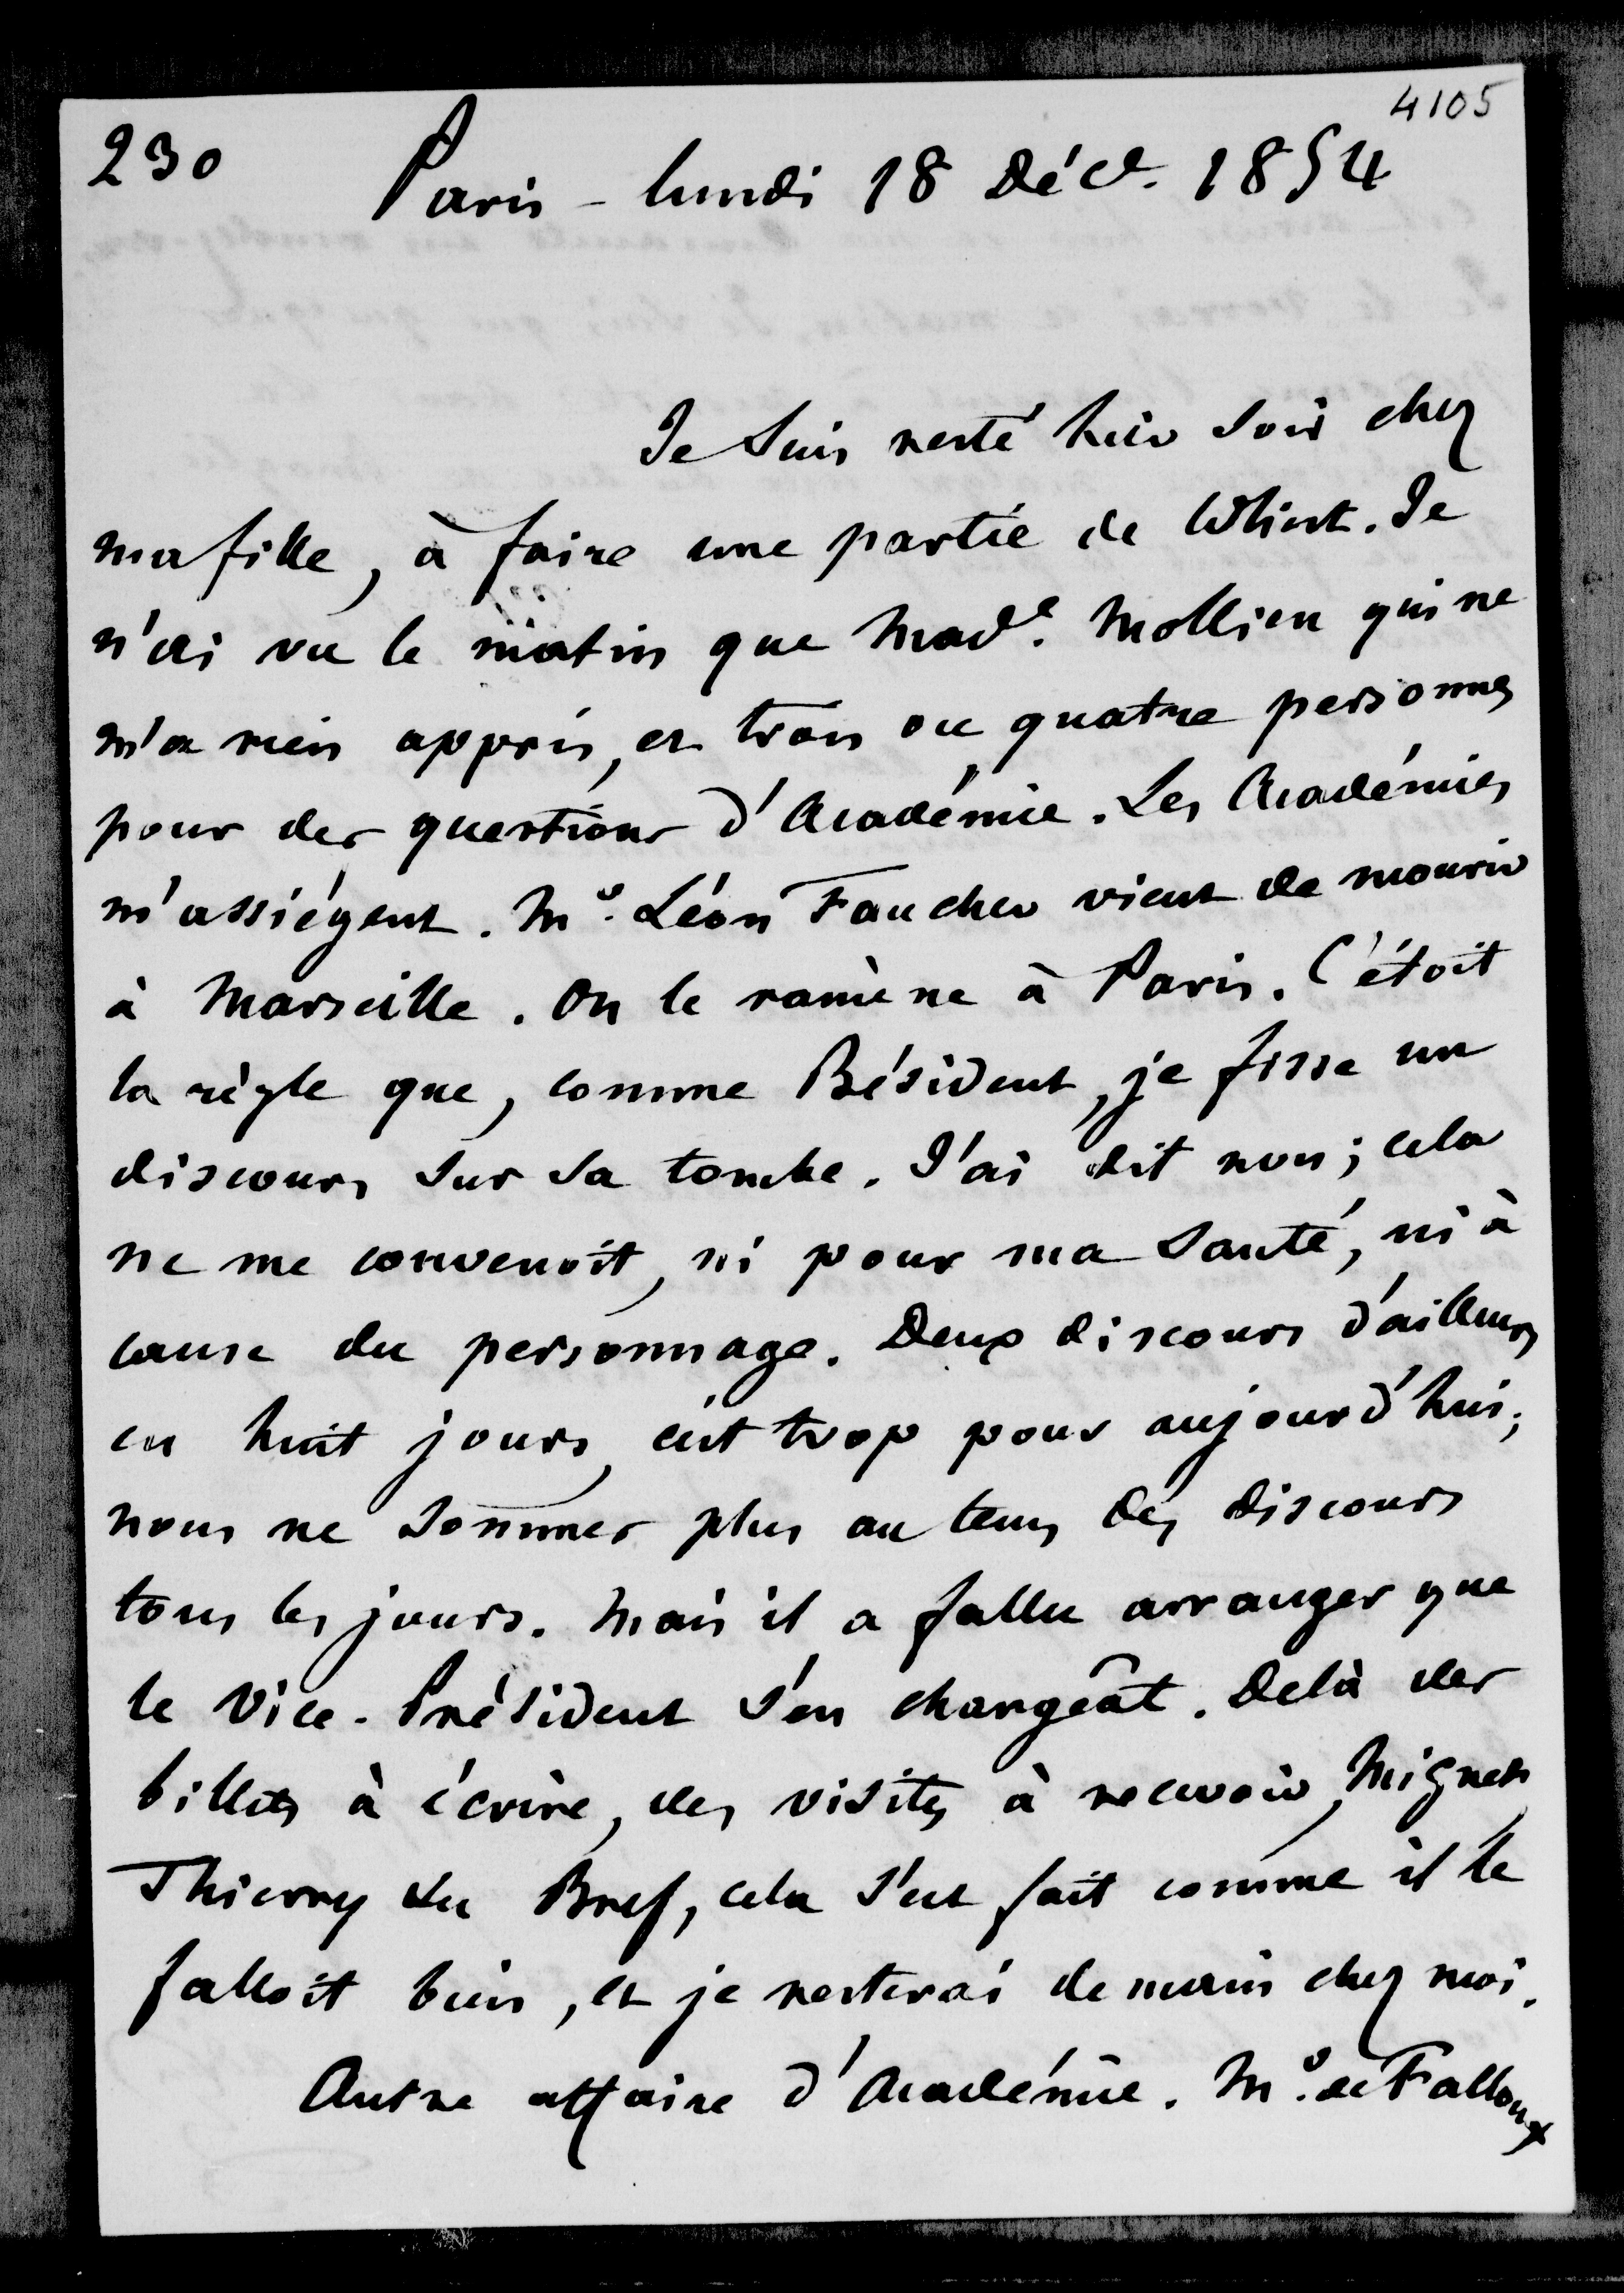 4105
230
Paris - lundi 18 Déc. 1854
Je suis resté hier soir chez
ma fille, à faire une partie de Whist. Je
n'ai vu le matin que Made. Mollien qui ne
m'a rien appris, et trois ou quatre personnes
pour des questions d'Académie. Les Académies
m'assiégent. Mr. Léon Faucher vient de mourir
à Marseille. On le ramène à Paris. C'étoit
la règle que, comme Président, je fisse un
discours sur sa tombe. J'ai dit non ; cela
ne me convenoit, ni pour ma santé, ni à
cause du personnage. Deux discours d'ailleurs
en huit jours, c'est trop pour aujourd'hui ;
nous ne sommes plus au tems des discours
tous les jours. Mais il a fallu arranger que
le Vice-Président s'en chargeât. Delà des
billets à écrire, des visites à recevoir, Mignet
Thierry &a Bref, cela s'est fait comme il le
falloit bien, et je resterai demain chez moi.
Autre affaire d'Académie. Mr. de Falloux